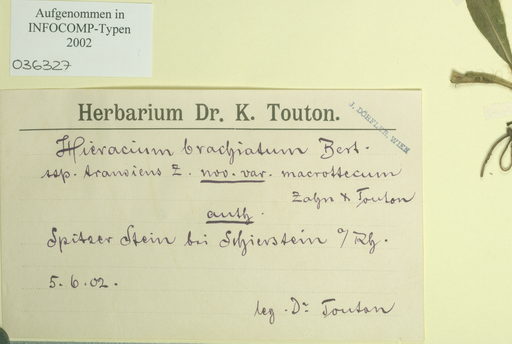 Aufgenommen in
INFOCOMP-Typen
2002
036327
Herbarium Dr. K. Touton.
J. DÖRFLER, WIEN
Hieracium brachiatum Bert.
ssp. transiens Z. nov. var. macrothecum
Zahn & Touton
auth.
Spitzer Stein bei Schierstein a/Rh.
5. 6. 02.
leg. Dr Touton